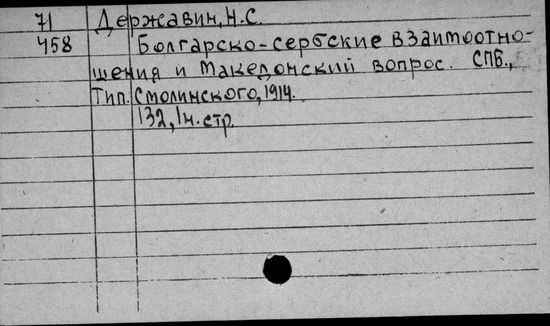 71 Державин, Н.С.
458 Болгарско-сербские взаимоотно-
шения и Македонский вопрос. СПБ.,
Тип. Смолинского, 1914.
132, 1 н. стр.